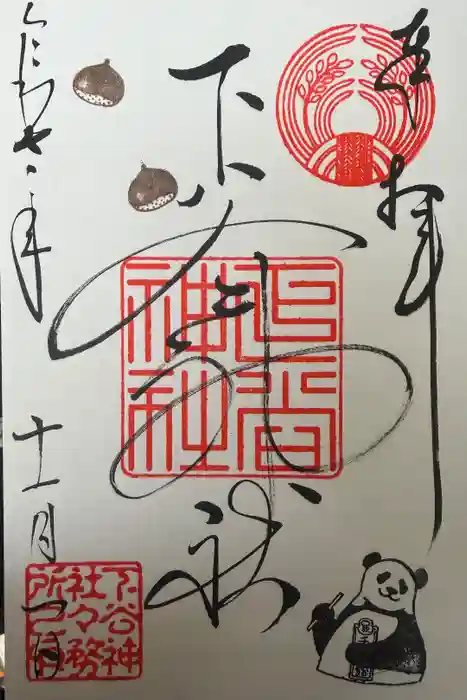 奉拝
下谷神社
下谷神社
令和七年
十一月
下谷神
社々務
所之印